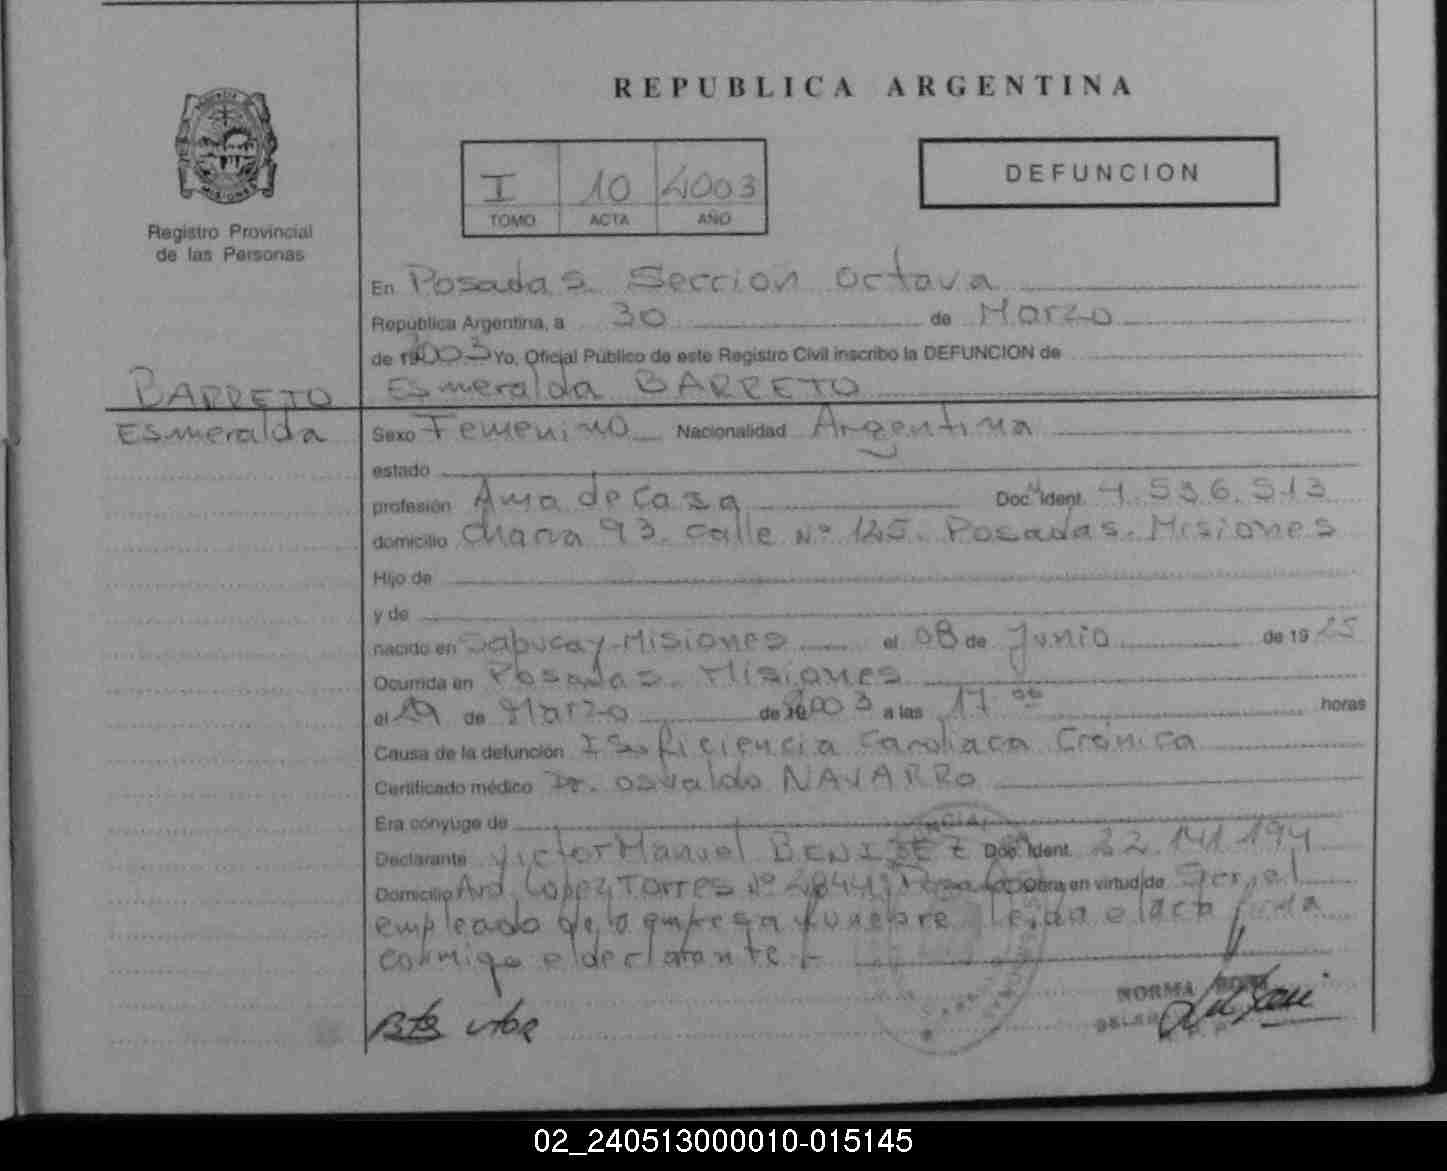 REPUBLICA ARGENTINA
I 10 2003
TOMO ACTA AÑO
DEFUNCION
Registro Provincial
de las Personas
En Posadas. Seccion octava
República Argentina, a 30 de Marzo
de 2003 Yo, Oficial Público de este Registro Civil inscribo la DEFUNCION de
Esmeralda BARRETO
BARRETO
Esmeralda
Sexo Femenino Nacionalidad Argentina
estado
profesión Ama de Casa Doc. Ident. 4.536.513
domicilio Chacra 93. Calle Nº 125. Posadas. Misiones
Hijo de
y de
nacido en Sapucay-Misiones el 08 de Junio de 1925
Ocurrida en Posadas. Misiones
el 29 de Marzo de 2003 a las 17 horas
Causa de la defunción Insuficiencia Cardiaca Crónica
Certificado médico Dr. Osvaldo NAVARRO
Era cónyuge de
Declarante Victor Manuel BENITEZ Doc. Ident. 22.141.194
Domicilio Avd. Lopez Torres Nº Obra en virtud de Ser el
empleado de la empresa funebre Leida el acta firma
conmigo el declarante
NORMA
02_240513000010-015145